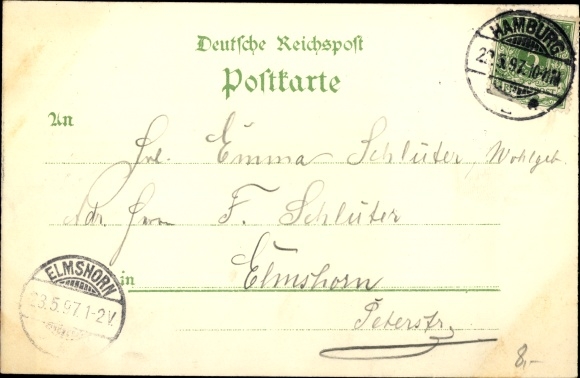 Deutsche Reichspost
Postkarte
HAMBURG
23.5.97.10-11
An
Frl. Emma Schlüter, Wohlgeb.
Adr. Herrn F. Schlüter
in Elmshorn
Peterstr.
ELMSHORN
23.5.97.1-2V.
8,-